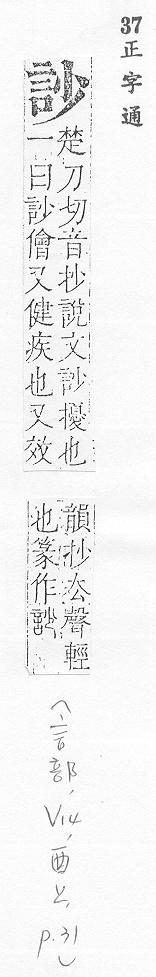 37正字通
訬
楚刀切音抄說文訬擾也
一曰訬獪又健疾也又效
韻抄去聲輕
也篆作訬
(言部, V14, 酉上, p.31)